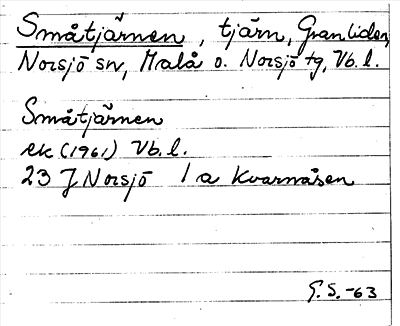 Småtjärnen, tjärn, Granliden,
Norsjö sn, Malå o. Norsjö tg, Vb. l.
Småtjärnen
ek (1961) Vb. l.
23 J Norsjö 1 a Kvarnåsen
G.S. -63